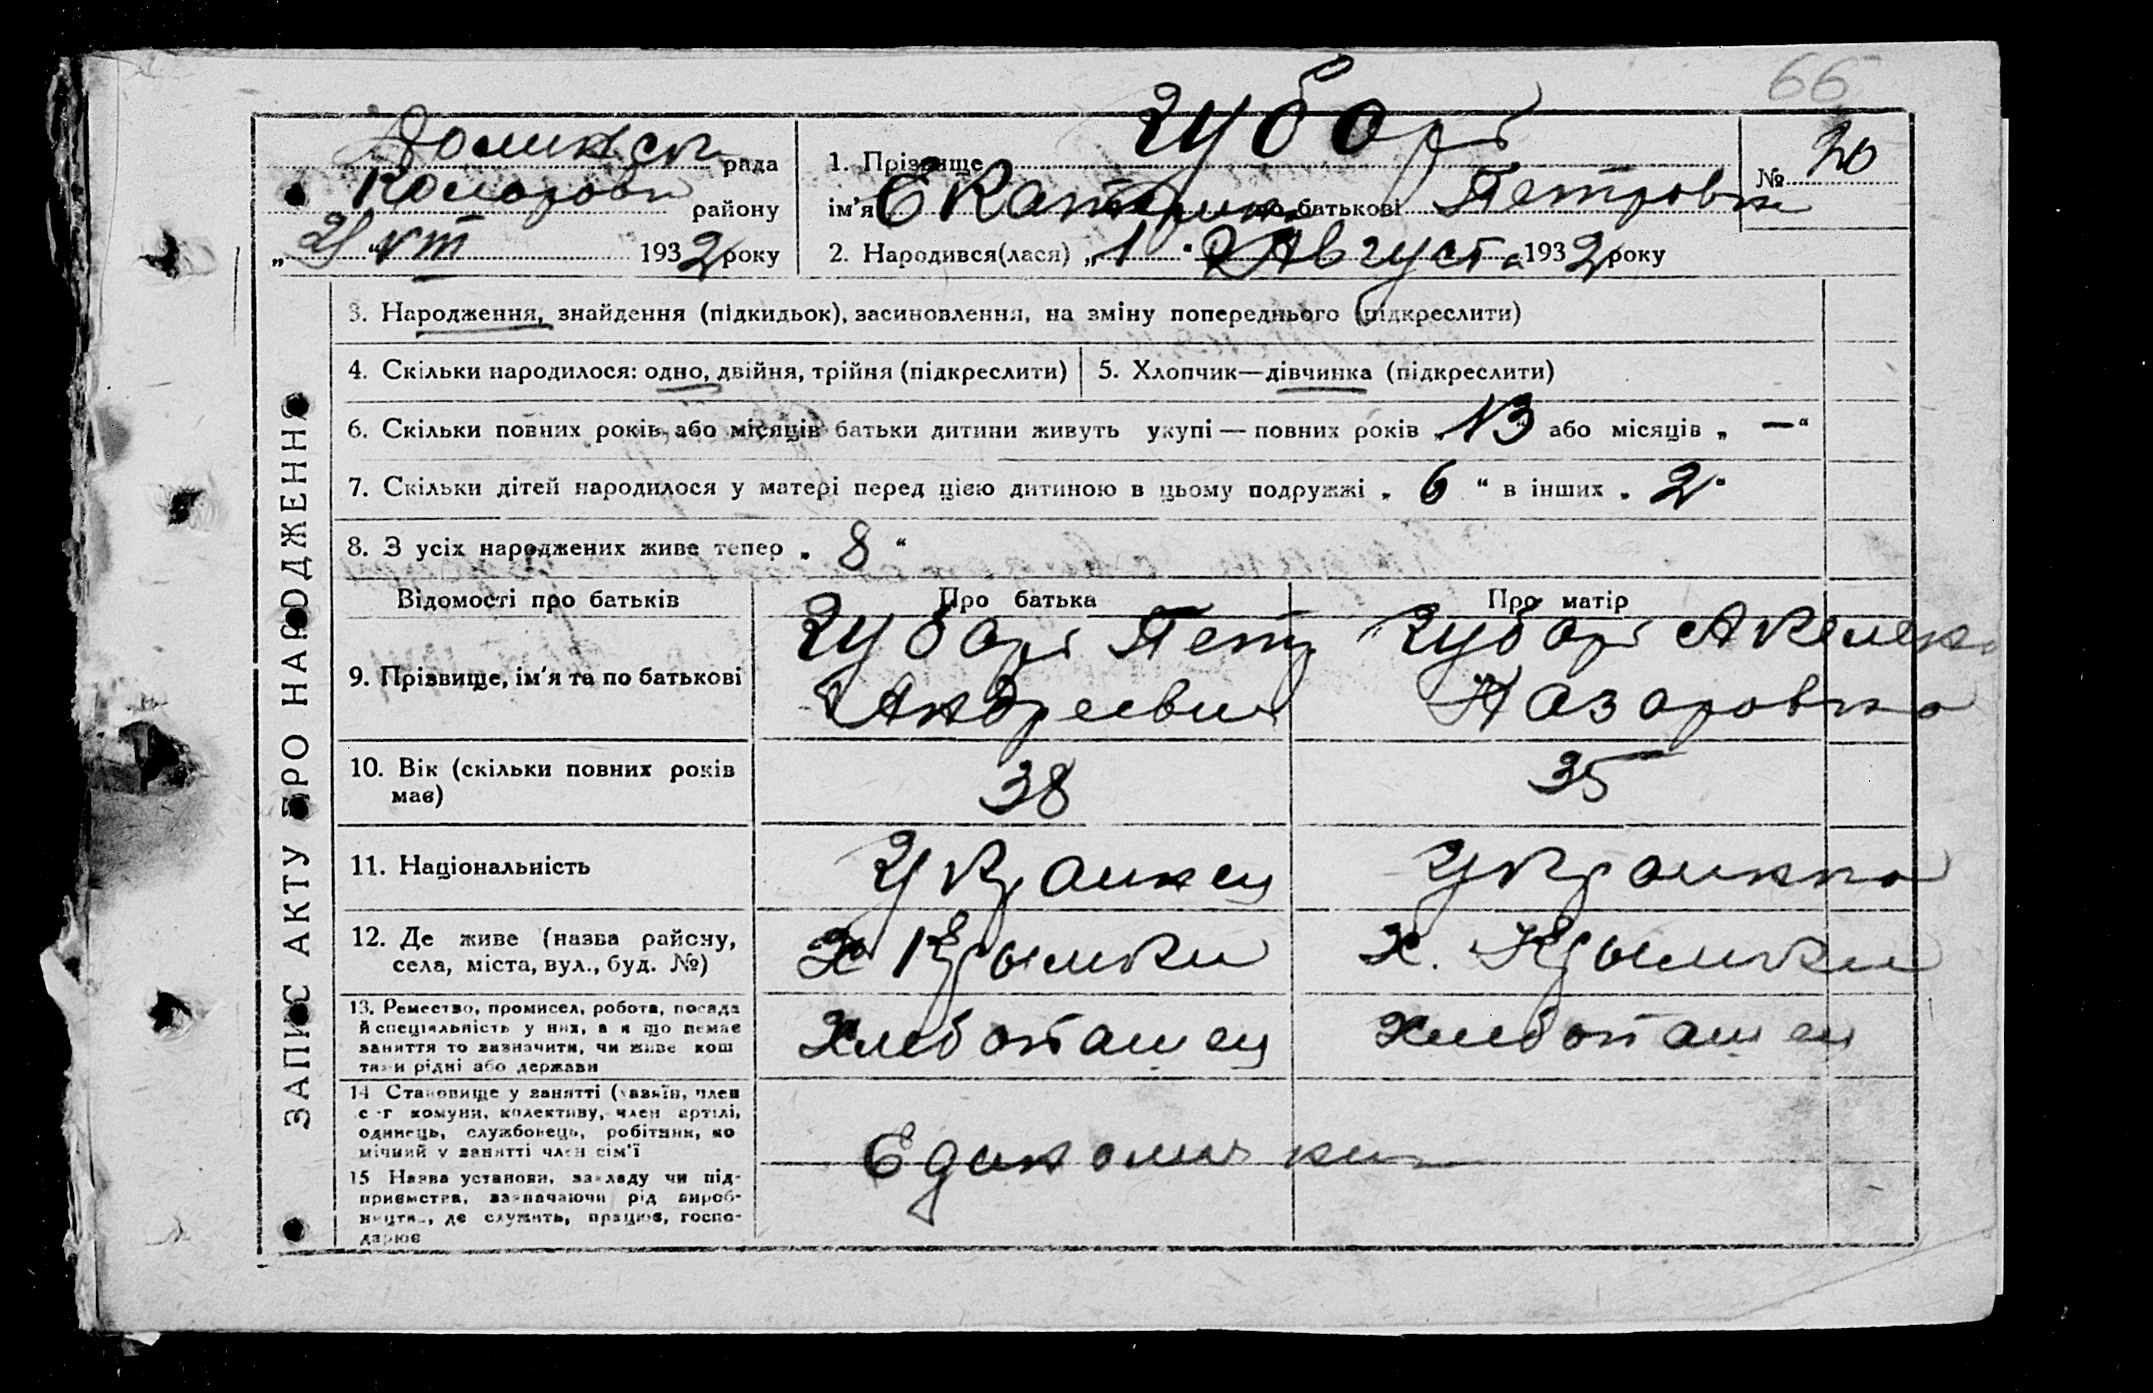 66
Долинсь рада
Комарови району
„ 1932 року
1. Прізвище Чубарь
ім'я Екатерина по батькові Петровн
№ 20
2. Народився(лася) „ 1 " Августа 1932 року
ЗАПИС АКТУ ПРО НАРОДЖЕННЯ
3. Народження, знайдення (підкидьок), засиновлення, на зміну попереднього (підкреслити)
4. Скільки народилося: одно, двійня, трійня (підкреслити)
5. Хлопчик—дівчинка (підкреслити)
6. Скільки повних років, або місяців батьки дитини живуть укупі — повних років „ 13 " або місяців „ — "
7. Скільки дітей народилося у матері перед цією дитиною в цьому подружжі „ 6 " в інших „ 2 "
8. З усіх народжених живе тепер „ 8 "
Відомості про батьків
Про батька
Про матір
9. Прізвище, ім'я та по батькові
Чубарь Петр
Андреевич
Чубарь Акелена
Назаровна
10. Вік (скільки повних років
має)
38
35
11. Національність
Украинец
Украинка
12. Де живе (назва району,
села, міста, вул., буд. №)
х Крымки
х. Крымки
13. Ремество, промисел, робота, посада
й спеціяльність у них, а я що немає
заняття то зазначити, чи живе кош
тами рідні або держави
Хлебопашец
Хлебопашец
14 Становище у занятті (хазяїн, член
с-г комуни, колективу, член артілі,
одинець, службовець, робітник, по
мічний у занятті член сім'ї
Единолички
15 Назва установи, закладу чи під-
приємства, зазначаючи рід вироб-
ництва, де служить, працює, госпо-
дарює